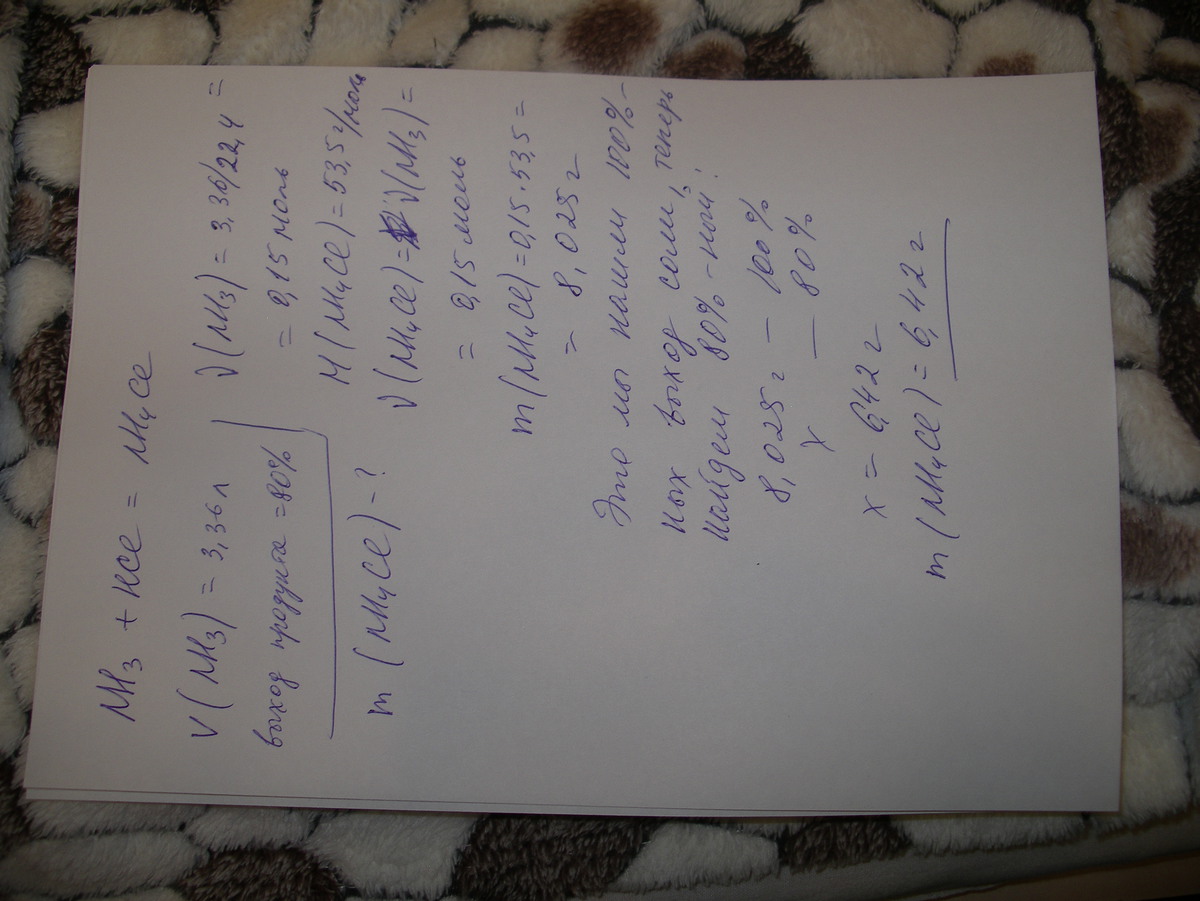 NH3 + HCl = NH4Cl
V(NH3) = 3,36 л
выход продукта = 80%
m(NH4Cl) - ?
ν(NH3) = 3,36/22,4 =
= 0,15 моль
M(NH4Cl) = 53,5 г/моль
ν(NH4Cl) = ν(NH3) =
= 0,15 моль
m(NH4Cl) = 0,15·53,5 =
= 8,025 г
Это мы нашли 100%-
ных выход соли, теперь
найдем 80%-ной:
8,025 г — 100%
x — 80%
x = 6,42 г
m(NH4Cl) = 6,42 г